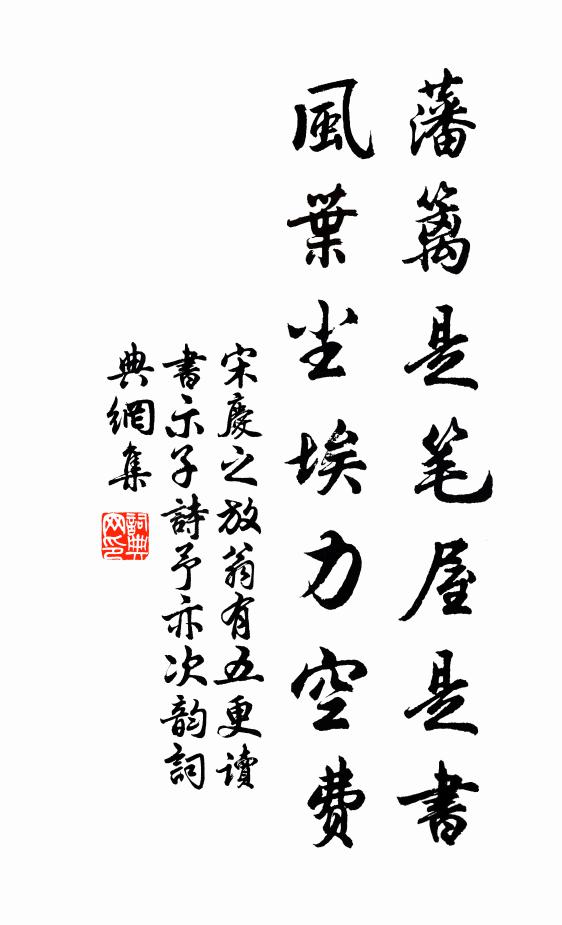 藩篱是笔屋是書
風葉尘埃力空費
宋慶之放翁有五更讀
書示子詩予亦次韵詞
典網集
詞典
网印